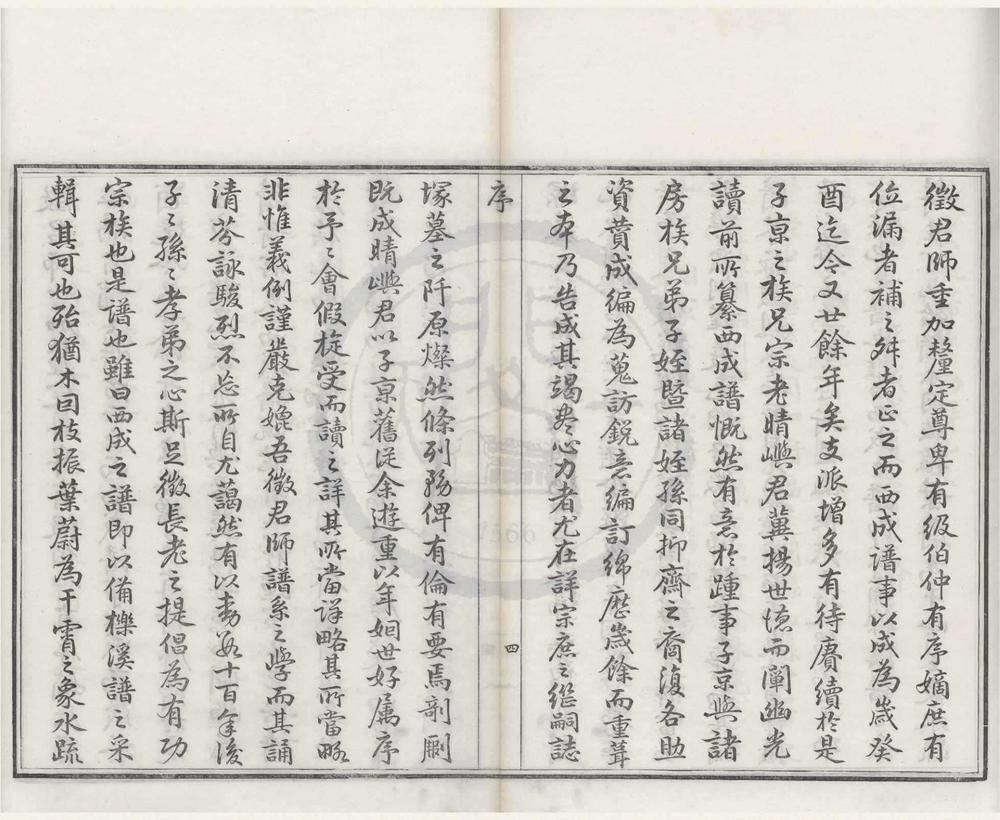 徵君師重加釐定尊卑有級伯仲有序嫡庶有
位漏者補之舛者正之而西成譜事以成為歲癸
酉迄今又廿餘年矣支派增多有待賡續於是
子京之族兄宗老晴嶼君冀揚世德而闡幽光
讀前所纂西成譜慨然有意於踵事子京與諸
房族兄弟子姪暨諸姪孫同抑齋之裔復各助
資費成編為蒐訪銳意編訂綿歷歲餘而重葺
之本乃告成其竭盡心力者尤在詳宗庶之繼嗣誌
序
四
塚墓之阡原燦然條列務俾有倫有要焉剞劂
既成晴嶼君以子京舊從余遊重以年姻世好属序
於予予會假旋受而讀之詳其所當詳略其所當略
非惟義例謹嚴克媲吾徵君師譜系之學而其誦
清芬詠駿烈不忘所自尤藹然有以動數十百年後
子子孫孫孝弟之心斯足徵長老之提倡為有功
宗族也是譜也雖曰西成之譜即以備櫟溪譜之采
輯其可也殆猶木因枝振葉蔚為干霄之象水疏